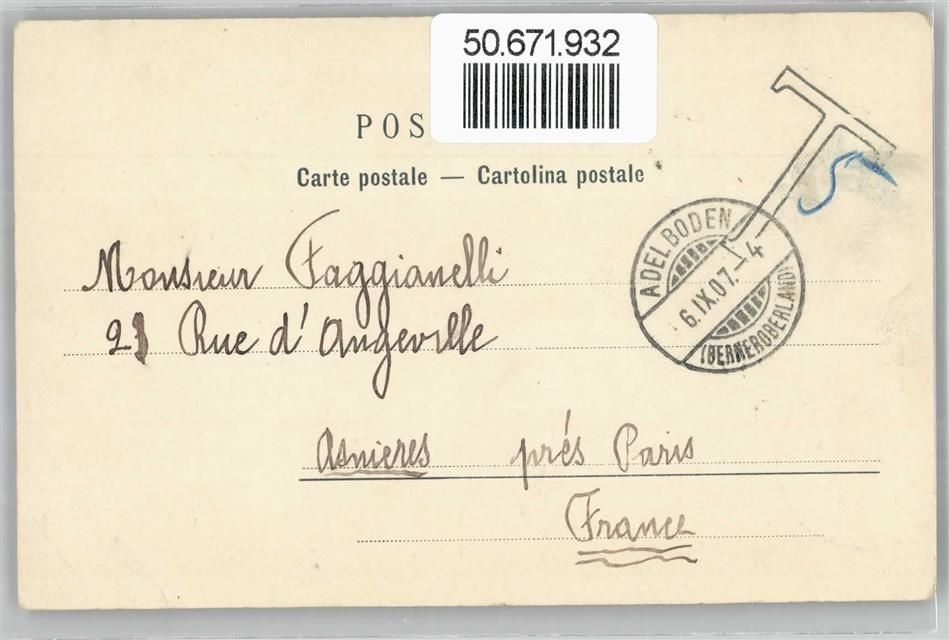 50.671.932
POS
Carte postale — Cartolina postale
T
5
ADELBODEN
6.IX.07.–4
(BERNEROBERLAND)
Monsieur Faggianelli
21 Rue d'Angeville
Asnieres prés Paris
France